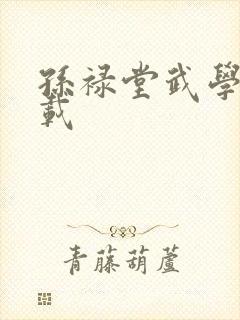 孫禄堂武學
載
青藤葫蘆